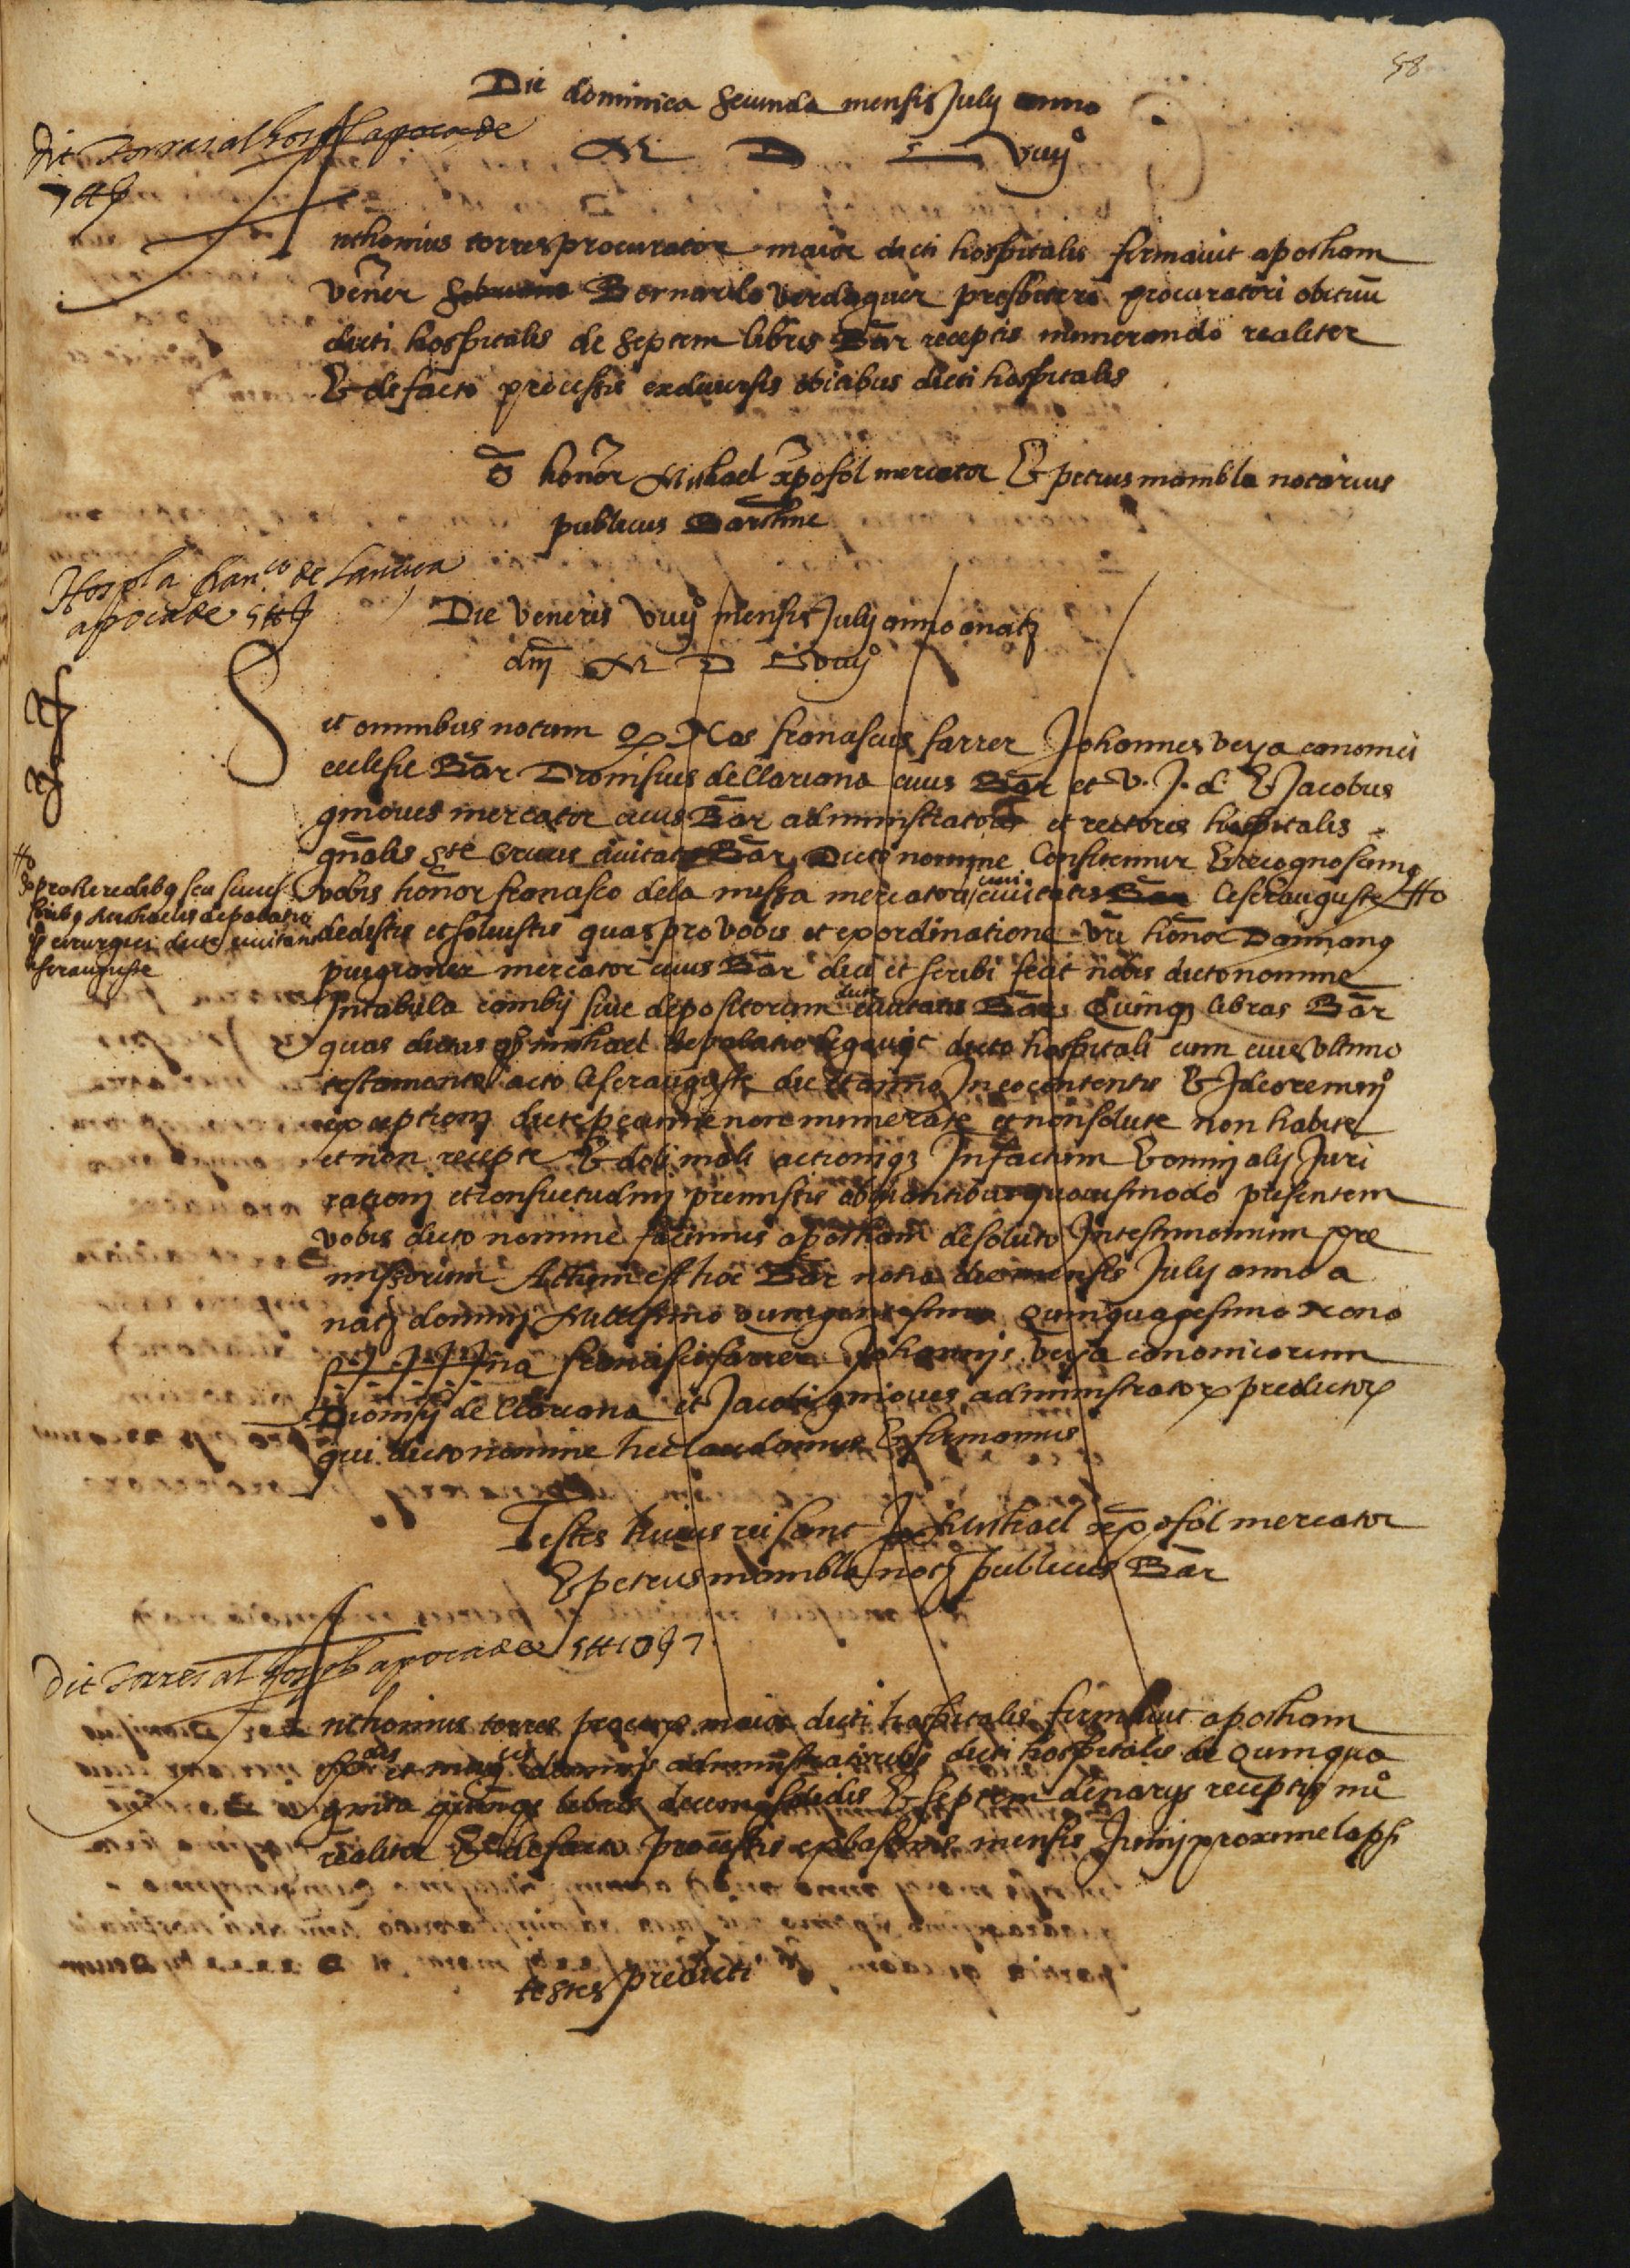 58
Die dominica secunda mensis July anno
M D L viiijº
dit Torras al hospl apoca de
7 ₶
Anthonius torres procurator maior dicti hospitalis firmavit apocham
vener Bernardo Verdaguer presbitero procuratori obituū
dicti hospitalis de septem libris Bar receptis numerando realiter
& de facto processis ex diversis obitibus dicti hospitalis
honor Michael xpofol mercator & petrus mambla notarius
publicus Barchine
Hospl a franco de Lanuça
apoca de 5 ₶
Die Veneris Viiijº mensis July anno a natz
dnj M D L viiijº
Sit omnibus notum q Nos franciscus farrer Johannes Veya canonici
ecclesie Bar Dionisius de Clariana civis Bar et V. J. d. & Jacobus
gmoves mercator civis Bar administratores et rectores hospitalis
gnalis ste Crucis civitatis Bar Dicto nomine Confitemur & recognoscimus
vobis honor francisco dela nussa mercatori civi civitatis Bar Cesarauguste
pro heredibus seu succes
soribus Michaelis de palatio
cirurgici dicte civitatis
Cesarauguste
dedistis et solvistis quas pro vobis et ex ordinatione vri honor Damianus
puigianer mercator civis Bar dici et scribi fecit nobis dicto nomine
In tabula cambij sive depositorum dicte civitatis Bar Quinq libras Bar
quas dictus michael de palatio legavit dicto hospitali cum eius ultimo
testamento acto Cesarauguste die et anno In eo contentis & Ideo renunº
exceptionj dicte peccunie non numerate et non solute non habite
et non recepte & doli mali actioniqz In factum & omnj alij Juri
rationj et consuetudinj premissis obviantibus quovismodo presentem
vobis dicto nomine facimus apocham de soluto In testimonium pre
missorum Actum est hoc Bar nona die mensis July anno a
natz dominj Millesimo quingentesimo Quinquagesimo Nono
Sig J J J J na francisci farrer Johannis Veya canonicorum
Dionisij de Clariana et Jacobi gmoves administrator predictor
qui dicto nomine hec laudamus & firmamus
Testes huius rei sunt Michael xpofol mercator
& petrus mambla notz publicus Bar
dit Torres al hospl apoca de 5 ₶ 10 ẞ 7
Anthonius torres procur maior dicti hospitalis firmavit apocham
dominis administratoribus dicti hospitalis de Quinqua
ginta quinqz libris decem solidis & septem denarijs receptis nuº
realiter & de facto processis ex bassinis mensis Junij proxime lapsi
testes predicti